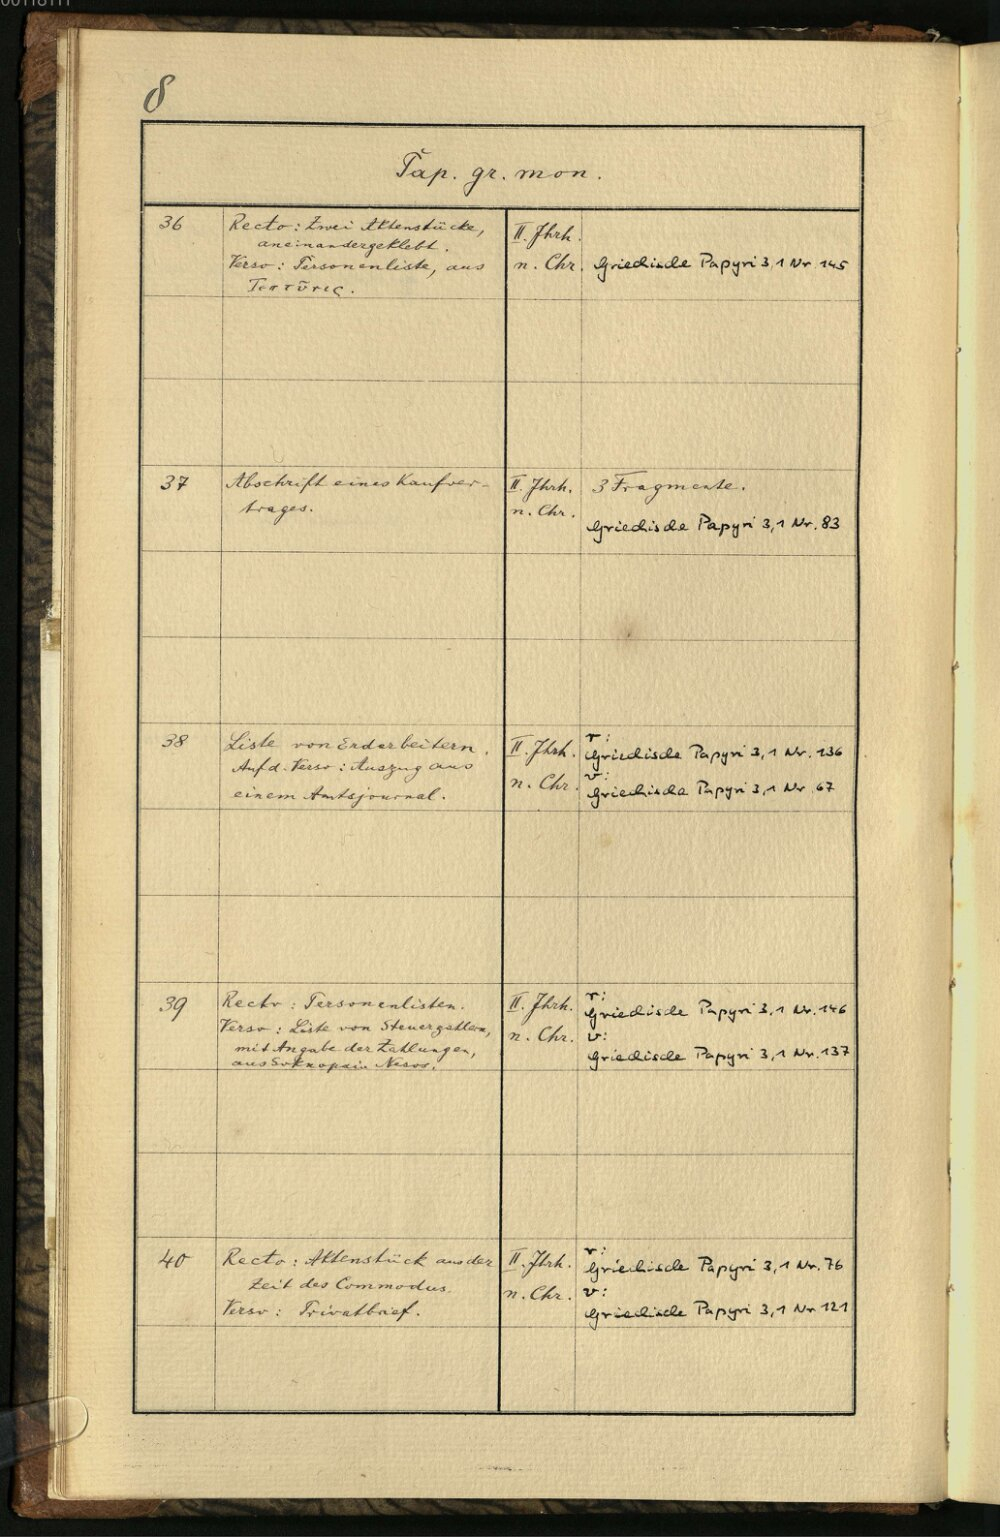 8
Pap. gr. mon.
36
Recto: Zwei Aktenstücke,
aneinandergeklebt.
Verso: Personenliste, aus
II. Jhrh.
n. Chr.
Griechische Papyri 3,1 Nr. 145
37
Abschrift eines Kaufver-
trages.
II. Jhrh.
n. Chr.
3 Fragmente.
Griechische Papyri 3,1 Nr. 83
38
Liste von Erdarbeitern.
Auf d. Verso: Auszug aus
einem Amtsjournal.
II. Jhrh.
n. Chr.
r:
Griechische Papyri 3,1 Nr. 136
v:
Griechische Papyri 3,1 Nr. 67
39
Recto: Personenlisten.
Verso: Liste von Steuerzahlern,
mit Angabe der Zahlungen,
aus Soknopaiu Nesos.
II. Jhrh.
n. Chr.
r:
Griechische Papyri 3,1 Nr. 146
v:
Griechische Papyri 3,1 Nr. 137
40
Recto: Aktenstück aus der
Zeit des Commodus.
Verso: Privatbrief.
II. Jhrh.
n. Chr.
r:
Griechische Papyri 3,1 Nr. 76
v:
Griechische Papyri 3,1 Nr 121